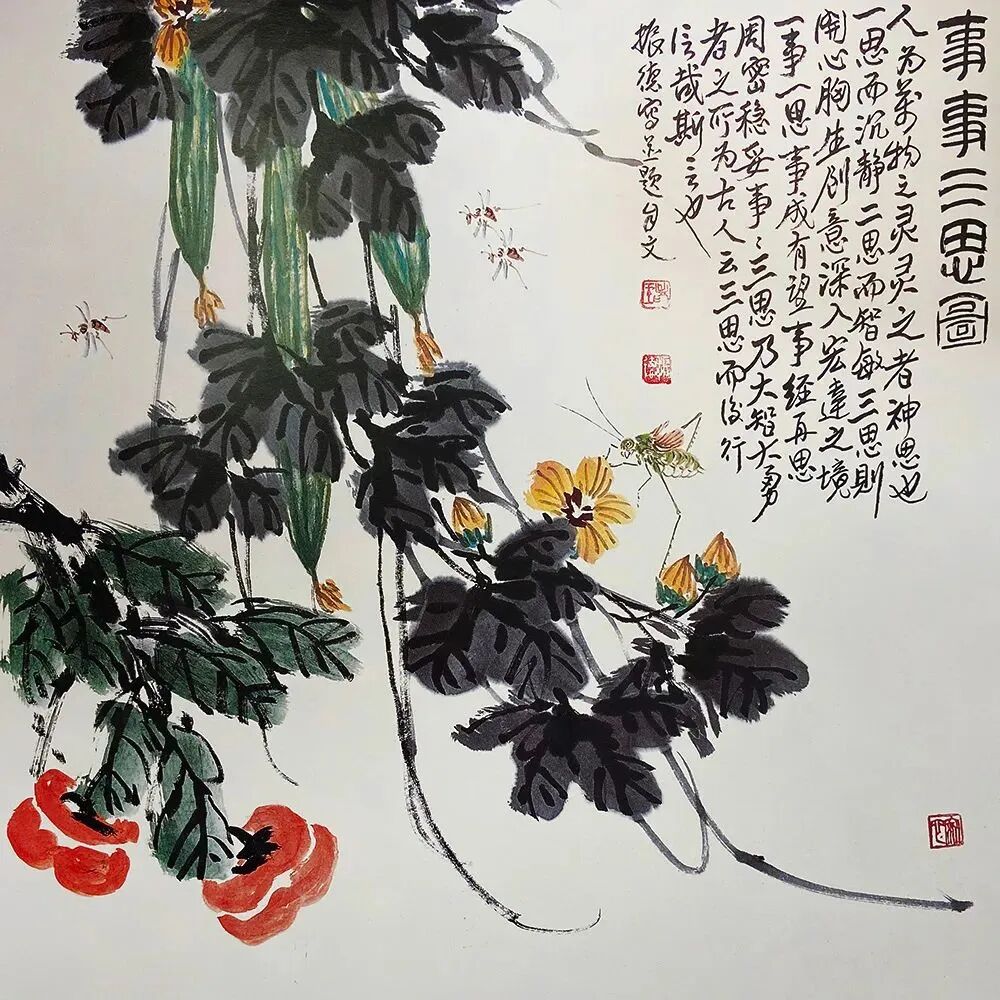 事事三思图
人为万物之灵灵之者神思也
一思而沉静二思而智敏三思则
开心胸生创意深入宏达之境
一事一思事成有望事经再思
周密稳妥事:三思乃大智大勇
者之所为古人云三思而后行
信哉斯言也
振德写并题自文